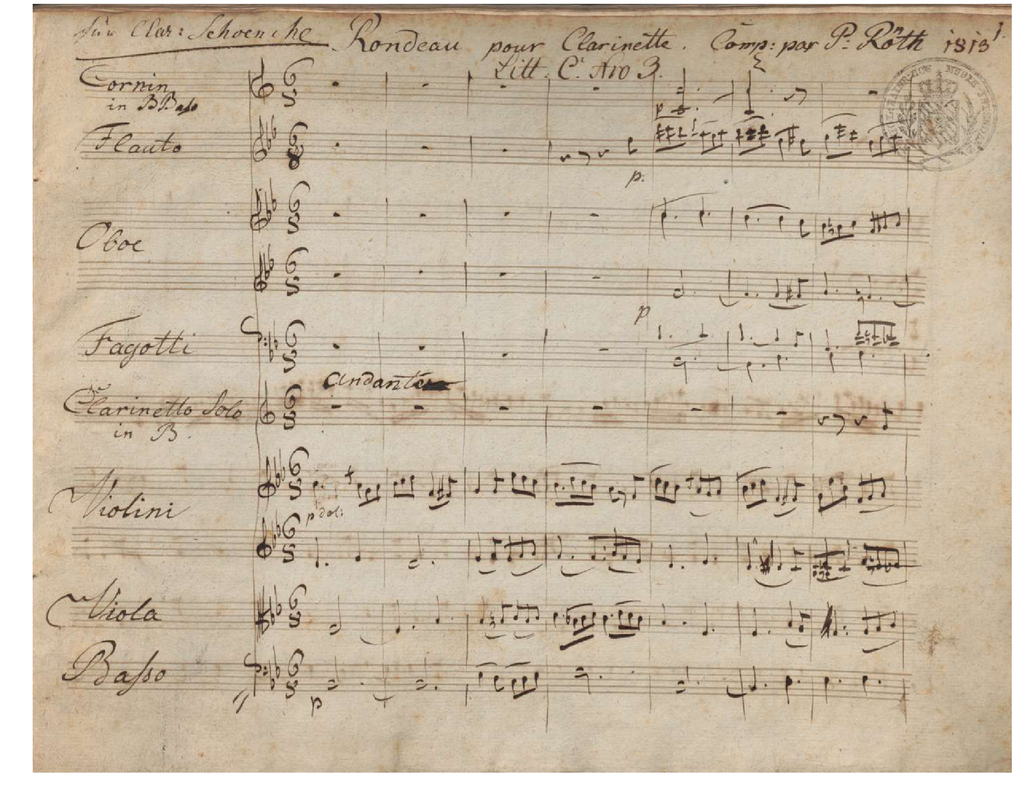 für Clar: Schoenche Rondeau pour Clarinette. Comp: par P: Röth 1813 1.
Litt. C. Nro 3.
Cornin
in B Baſso
Flauto
p.
Oboe
p
Fagotti
Andante
Clarinetto Solo
in B.
Violini
p dol:
Viola
Baſso
p